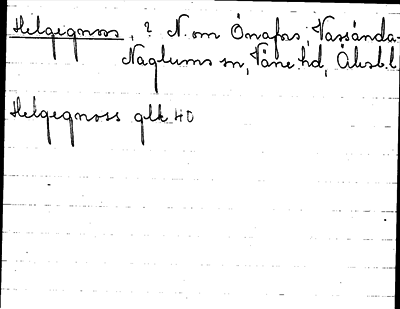 Helgegnoss, ? N. om Önafors, Vassända-
Naglums sn, Väne hd, Älvsb.l
Helgegnoss glk 40